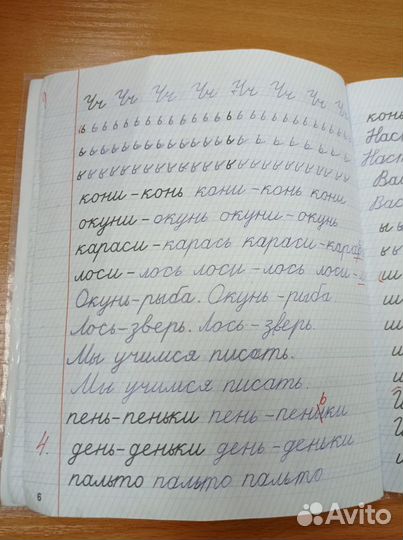 Чч Чч Чч Чч Чч Чч Чч Чч
кони-конь кони-конь кони
окуни-окунь окуни-окунь
караси-карась караси-карась
лоси-лось лоси-лось лоси-
Окунь-рыба. Окунь-рыба
Лось-зверь. Лось-зверь.
Мы учимся писать.
Мы учимся писать.
пень-пеньки пень-пеньки
4. день-деньки день-деньки
пальто пальто пальто
6
конь
Наст
Наст
Вас
Вас
Avito